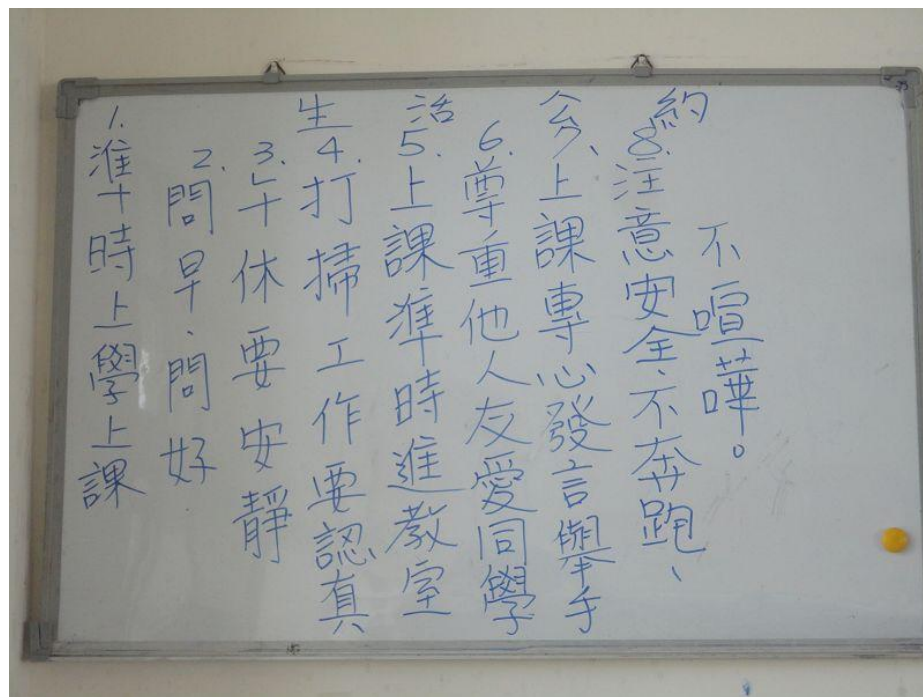 生活公約
1.準時上學上課
2.問早、問好
3.午休要安靜
4.打掃工作要認真
5.上課準時進教室
6.尊重他人友愛同學
7、上課專心發言舉手
8.注意安全、不奔跑、
不喧嘩。